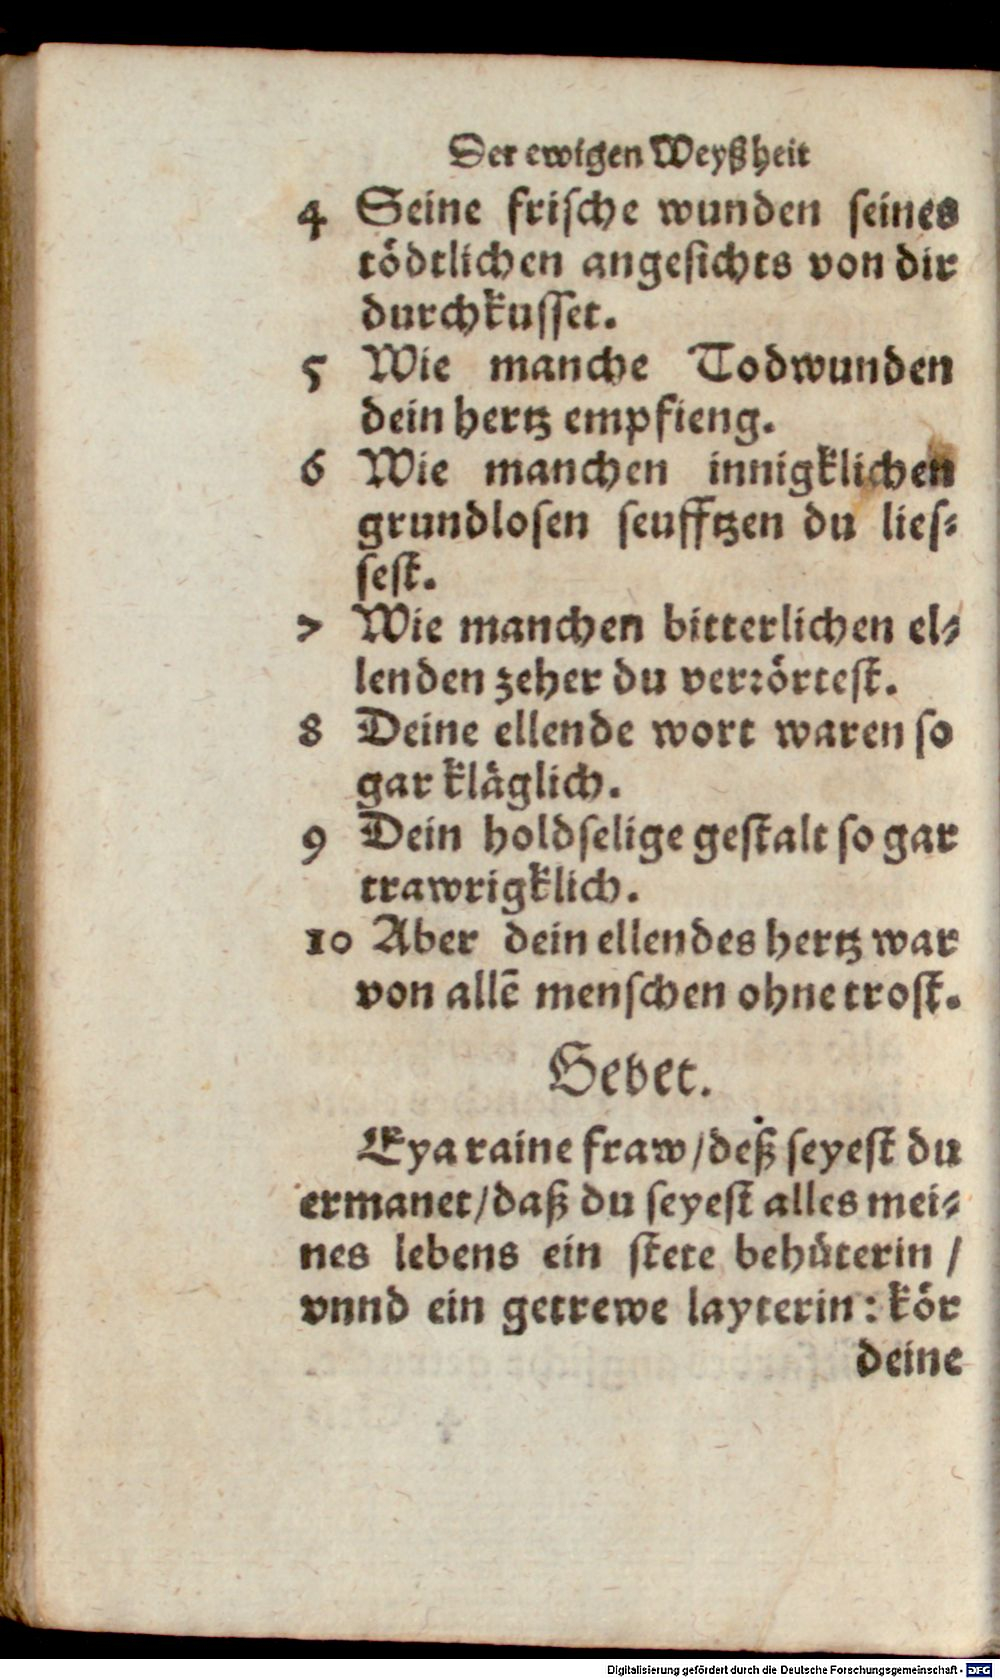 Der ewigen Weyßheit
4 Seine frische wunden seines
tödtlichen angesichts von dir
durchkusset.
5 Wie manche Todwunden
dein hertz empfieng.
6 Wie manchen innigklichen
grundlosen seufftzen du lies⸗
sest.
7 Wie manchen bitterlichen el⸗
lenden zeher du verrörtest.
8 Deine ellende wort waren so
gar kläglich.
9 Dein holdselige gestalt so gar
trawrigklich.
10 Aber dein ellendes hertz war
von allẽ menschen ohne trost.
Gebet.
Eya raine fraw/deß seyest du
ermanet/daß du seyest alles mei⸗
nes lebens ein stete behüterin /
vnnd ein getrewe layterin: kör
deine
Digitalisierung gefördert durch die Deutsche Forschungsgemeinschaft - DFG